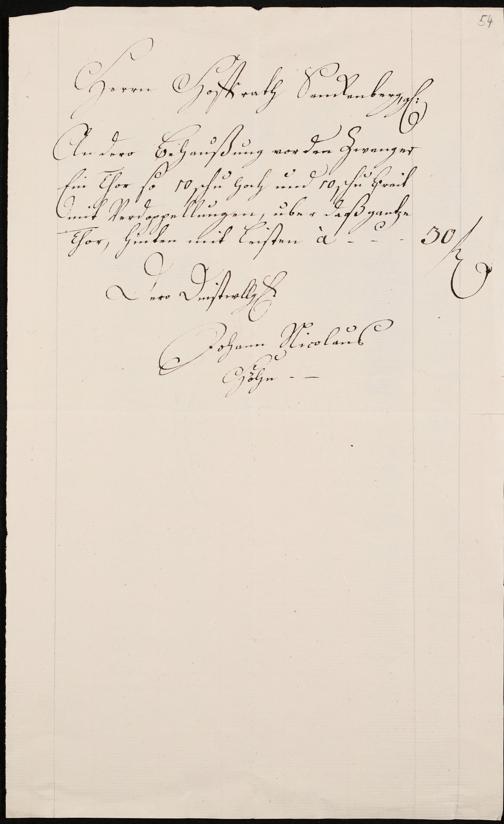 54
Herrn Hoffrath Senckenberg
An dero Behaußung vor den Zwanger
Ein Thor so 10 schu hoch und 10 schu breit
mit Verdoppellungen, uber daß gantze
Thor, hinten mit leisten à - - - 30
Dero Dinstwllg
Johann Nicolaus